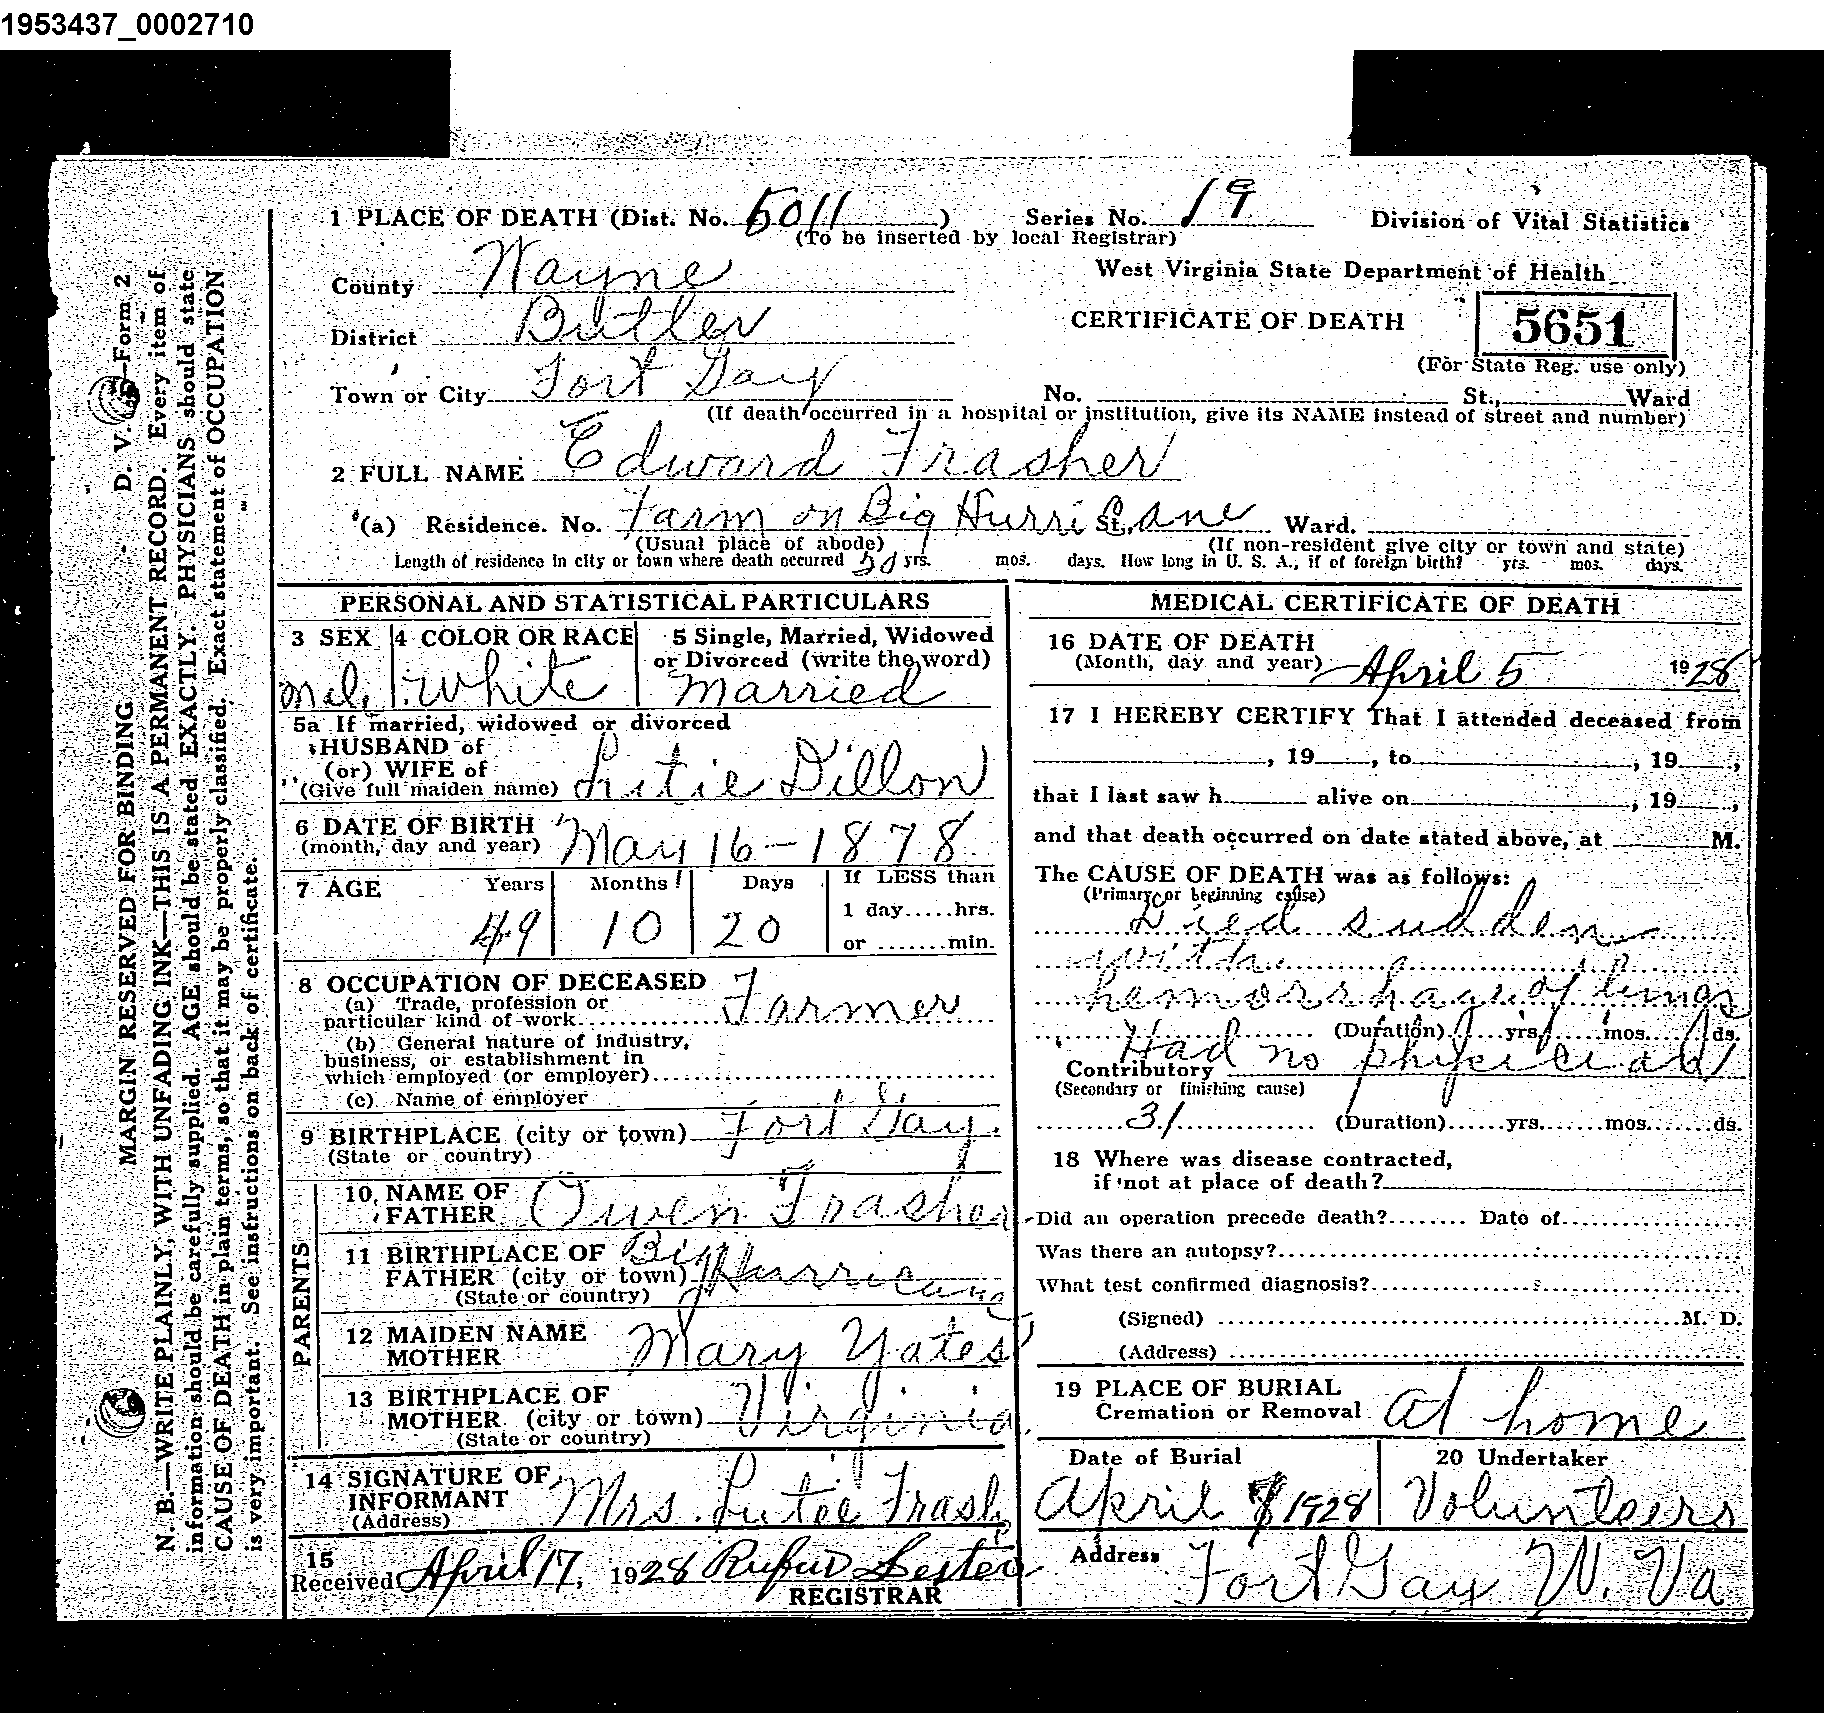 1953437_0002710
1 PLACE OF DEATH (Dist. No. 5011) Series No. 19 Division of Vital Statistics
(To be inserted by local Registrar)
County Wayne West Virginia State Department of Health
District Butler CERTIFICATE OF DEATH 5651
(For State Reg. use only)
Town or City Fort Gay No. St., Ward
(If death occurred in a hospital or institution, give its NAME instead of street and number)
2 FULL NAME Edward Frasher
(a) Residence. No. Farm on Big Hurricane St., Ward.
(Usual place of abode) (If non-resident give city or town and state)
Length of residence in city or town where death occurred 50 yrs. mos. days. How long in U. S. A., if of foreign birth? yrs. mos. days.
PERSONAL AND STATISTICAL PARTICULARS
3 SEX 4 COLOR OR RACE 5 Single, Married, Widowed
or Divorced (write the word)
Male White Married
5a If married, widowed or divorced
HUSBAND of
(or) WIFE of
(Give full maiden name) Lutie Dillon
6 DATE OF BIRTH
(month, day and year) May 16-1878
7 AGE Years Months Days If LESS than
1 day.....hrs.
49 10 20 or .......min.
8 OCCUPATION OF DECEASED
(a) Trade, profession or
particular kind of work Farmer
(b) General nature of industry,
business, or establishment in
which employed (or employer)
(c) Name of employer
9 BIRTHPLACE (city or town) Fort Gay
(State or country)
PARENTS
10 NAME OF
FATHER Owen Frasher
11 BIRTHPLACE OF
FATHER (city or town) Big Hurricane
(State or country)
12 MAIDEN NAME
MOTHER Mary Yates
13 BIRTHPLACE OF
MOTHER (city or town) Virginia
(State or country)
14 SIGNATURE OF
INFORMANT Mrs. Lutie Frash
(Address)
15
Received April 17, 1928 Rufus Lester
REGISTRAR
MEDICAL CERTIFICATE OF DEATH
16 DATE OF DEATH
(Month, day and year) April 5 1928
17 I HEREBY CERTIFY That I attended deceased from
, 19 , to , 19 ,
that I last saw h alive on , 19 ,
and that death occurred on date stated above, at M.
The CAUSE OF DEATH was as follows:
(Primary or beginning cause)
Died sudden
with
hemorrhage of lungs
(Duration) yrs. mos. ds.
Had no physician
Contributory
(Secondary or finishing cause)
31 (Duration) yrs. mos. ds.
18 Where was disease contracted,
if not at place of death?
Did an operation precede death? Date of
Was there an autopsy?
What test confirmed diagnosis?
(Signed) M. D.
(Address)
19 PLACE OF BURIAL
Cremation or Removal At home
Date of Burial 20 Undertaker
April 1928 Volunteers
Address
Fort Gay W. Va
D. V. Form 2
MARGIN RESERVED FOR BINDING
N. B.—WRITE PLAINLY, WITH UNFADING INK—THIS IS A PERMANENT RECORD. Every item of
information should be carefully supplied. AGE should be stated EXACTLY. PHYSICIANS should state
CAUSE OF DEATH in plain terms, so that it may be properly classified. Exact statement of OCCUPATION
is very important. See instructions on back of certificate.